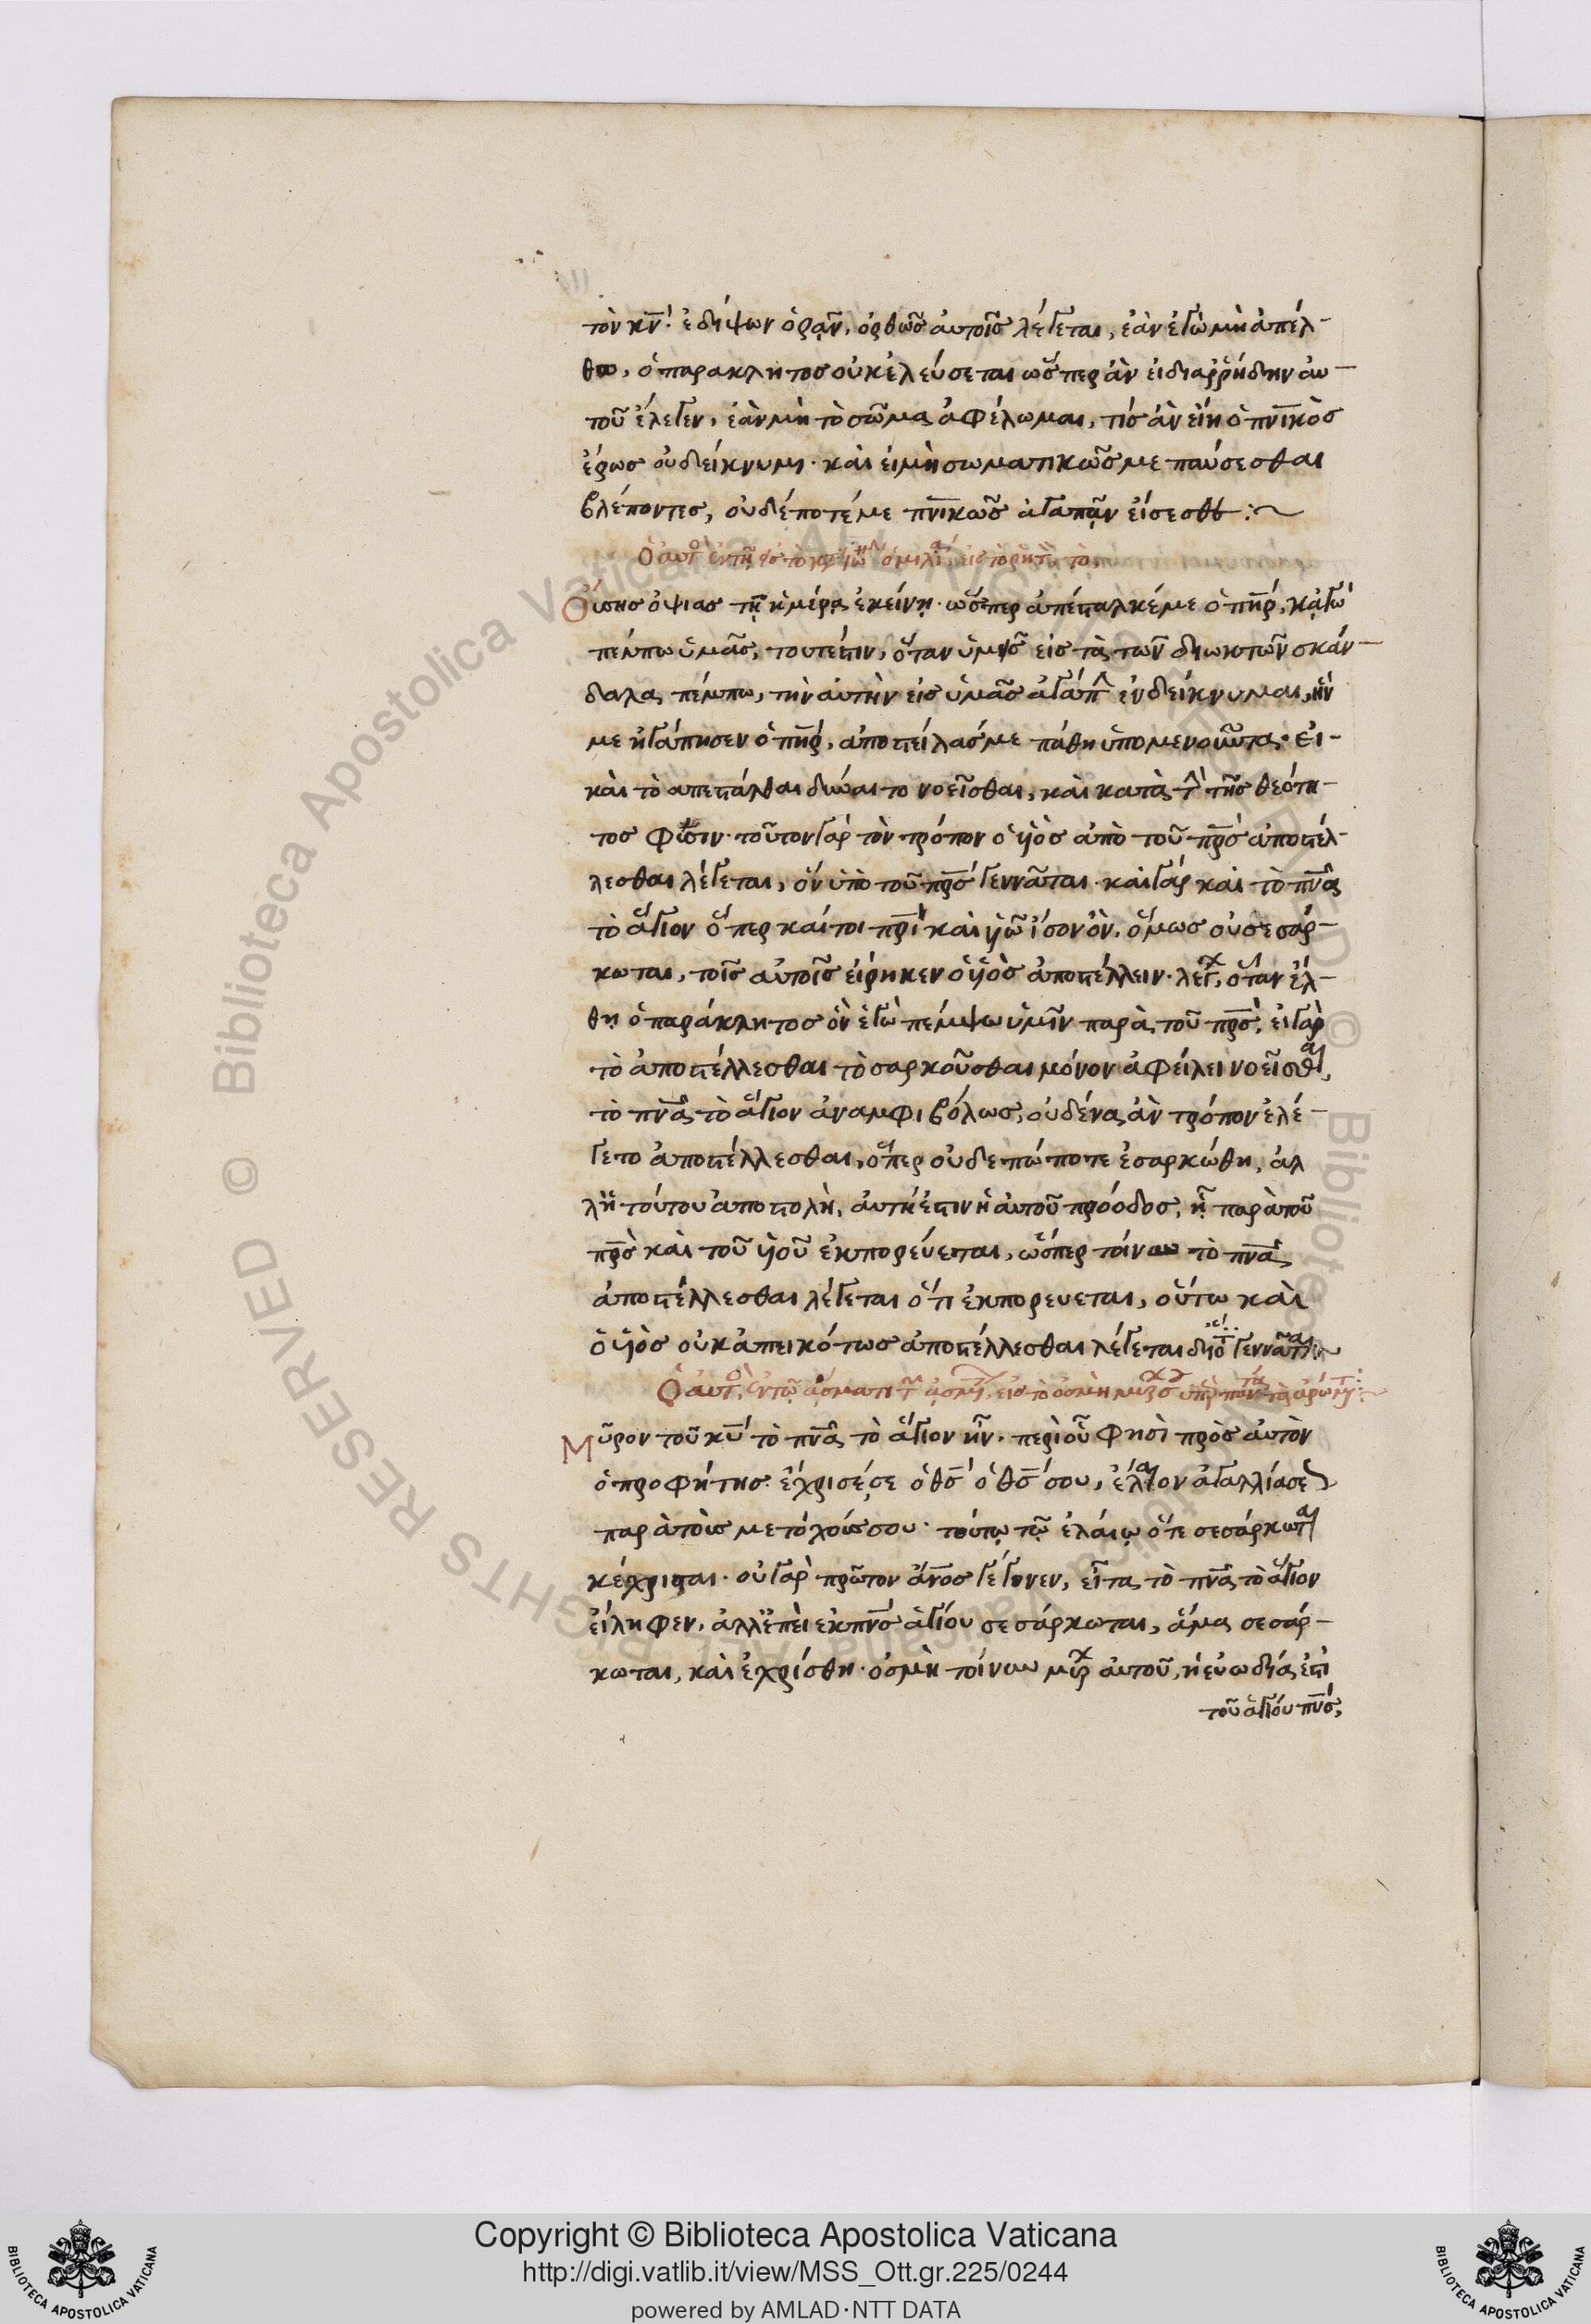 τὸν κν̅· ἐδίψων ὁρᾶν. ὀρθῶς αὐτοῖς λέγεται, ἐὰν ἐγὼ μὴ ἀπέλ-
θω, ὁ παρακλητος οὐκ ἐλεύσεται ὥσπερ ἂν εἰ διαρρήδην αυ-
τοῦ ἔλεγεν, ἐὰν μὴ τὸ σῶμα ἀφέλωμαι, τίς ἂν εἴη ὁ πν̅ικὸς
ἔρως οὐ δείκνυμι· καὶ εἰ μὴ σωματικῶς με παύσεσθαι
βλέποντες, οὐδέποτέ με πν̅ικῶς ἀγαπᾶν εἴσεσθε:~
Ὁ αὐτὸς ἐν τῇ ὁμιλία εἰς τὸ ῥητὸν τὸ,
Οὔσης ὀψιας τῇ ἡμέρᾳ ἐκείνῃ· ὥσπερ ἀπέσταλκέ με ὁ πη̅ρ, κἀγὼ
πέμπω ὑμᾶς, τουτέστιν, ὅταν ὑμᾶς εἰς τὰ τῶν διωκτῶν σκάν-
δαλα πέμπω, τὴν αὐτὴν εἰς ὑμᾶς ἀγάπην ἐνδείκνυμαι, ἣν
με ἠγάπησεν ὁ πη̅ρ, ἀποστείλας με πάθη ὑπομενοῦντα· εἰ-
καὶ τὸ ἀπεστάλθαι δύναι το νοεῖσθαι, καὶ κατὰ τὴν τῆς θεότη-
τος φύσιν· τοῦτον γὰρ τὸν τρόπον ὁ ὑιὸς ἀπὸ τοῦ πρ̅ς ἀποστέλ-
λεσθαι λέγεται, ὃν ὑπὸ τοῦ πρ̅ς γεννᾶται· καὶ γὰρ καὶ τὸ πν̅α
τὸ ἅγιον ὅπερ καίτοι πρ̅ὶ καὶ ὑιῶ ἴσον ὂν. ὅμως οὐ σεσάρ-
κωται, τοῖς αὐτοῖς εἴρηκεν ὁ ὑιὸς ἀποστέλλειν· λέγων, ὅταν ἔλ-
θῃ ὁ παράκλητος ὃν ἐγὼ πέμψω ὑμῖν παρὰ τοῦ πρ̅ς, εἰ γὰρ
τὸ ἀποστέλλεσθαι τὸ σαρκοῦσθαι μόνον ὀφείλει νοεῖσθαι,
τὸ πν̅α τὸ ἅγιον ἀναμφιβόλως, οὐδένα ἂν τρόπον ἐλέ-
γετο ἀποστέλλεσθαι, ὅπερ οὐδεπώποτε ἐσαρκώθη, ἀλ
λ' ἡ τούτου ἀποστολὴ, αὐτή ἐστιν ἡ αὐτοῦ πρόοδος, ᾗ παρὰ τοῦ
πρ̅ς καὶ τοῦ ὑιοῦ ἐκπορεύεται, ὥσπερ τοίνυν τὸ πν̅α
ἀποστέλλεσθαι λέγεται ὅτι ἐκπορευεται, οὕτω καὶ
ὁ ὑιὸς οὐκ ἀπεικότως ἀποστέλλεσθαι λέγεται διότι γεννᾶται:~
Ὁ αὐτὸς, ἐν τῷ ᾄσματι τῶν ᾀσμάτων, εἰς τὸ ὀσμὴ μύρου σου ὑπὲρ πάντα τὰ ἀρώματα:~
Μῦρον τοῦ κυ̅ τὸ πν̅α τὸ ἅγιον ἦν. περὶ οὗ φησὶ πρὸς αὐτὸν
ὁ προφήτης· ἔχρισέ σε ὁ θς̅ ὁ θς̅ σου, ἔλαιον ἀγαλλιάσεως
παρὰ τοὺς μετόχους σου· τούτῳ τῷ ἐλαίῳ ὅτε σεσάρκωται
κέχρισται· οὐ γὰρ πρῶτον ἄνο̅ς γέγονεν, εἶτα τὸ πν̅α τὸ ἅγιον
εἴληφεν, ἀλλ' ἐπεὶ ἐκ πν̅ς ἁγίου σεσάρκωται, ἅμα σεσάρ-
κωται, καὶ ἐχρίσθη· ὀσμὴ τοίνυν μύρου αὐτοῦ, ἡ εὐωδία ἐστὶ
τοῦ ἁγίου πν̅ς,
Copyright © Biblioteca Apostolica Vaticana
http://digi.vatlib.it/view/MSS_Ott.gr.225/0244
powered by AMLAD·NTT DATA